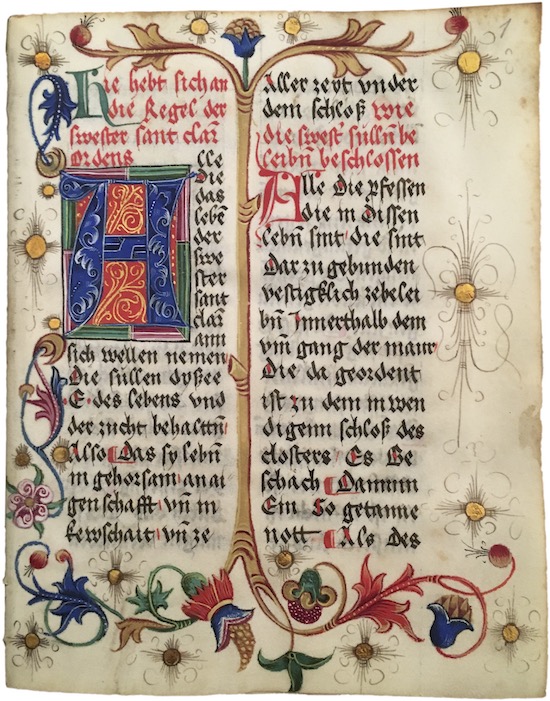 1
Hie hebt sich an
die Regel der
swester sant clar̄
ordens
Alle
die
das
lebn̄
der
swe
ster
sant
clar̄
ann
sich wellen nemen
Die süllen dysse
E des lebens vnd
der zucht behaltn̄
Also Das sy lebn̄
in gehorsam an ai
genschafft vn̄ in
kewschait vn̄ ze
Aller zeyt vnder
dem schloß wie
die swest sülln̄ be
leibn̄ beschlossen
Alle Die pfessen
die in dissen
lebn̄ sint die sint
Dar zu gebunden
vestigklich zebelei
bn̄ Innerthalb dem
vm̄ gang der maur
Die da geordent
ist zu dem in wen
digenn schloß des
closters Es Be
schäch Dannnn
Ein So getanne
nott Als Des